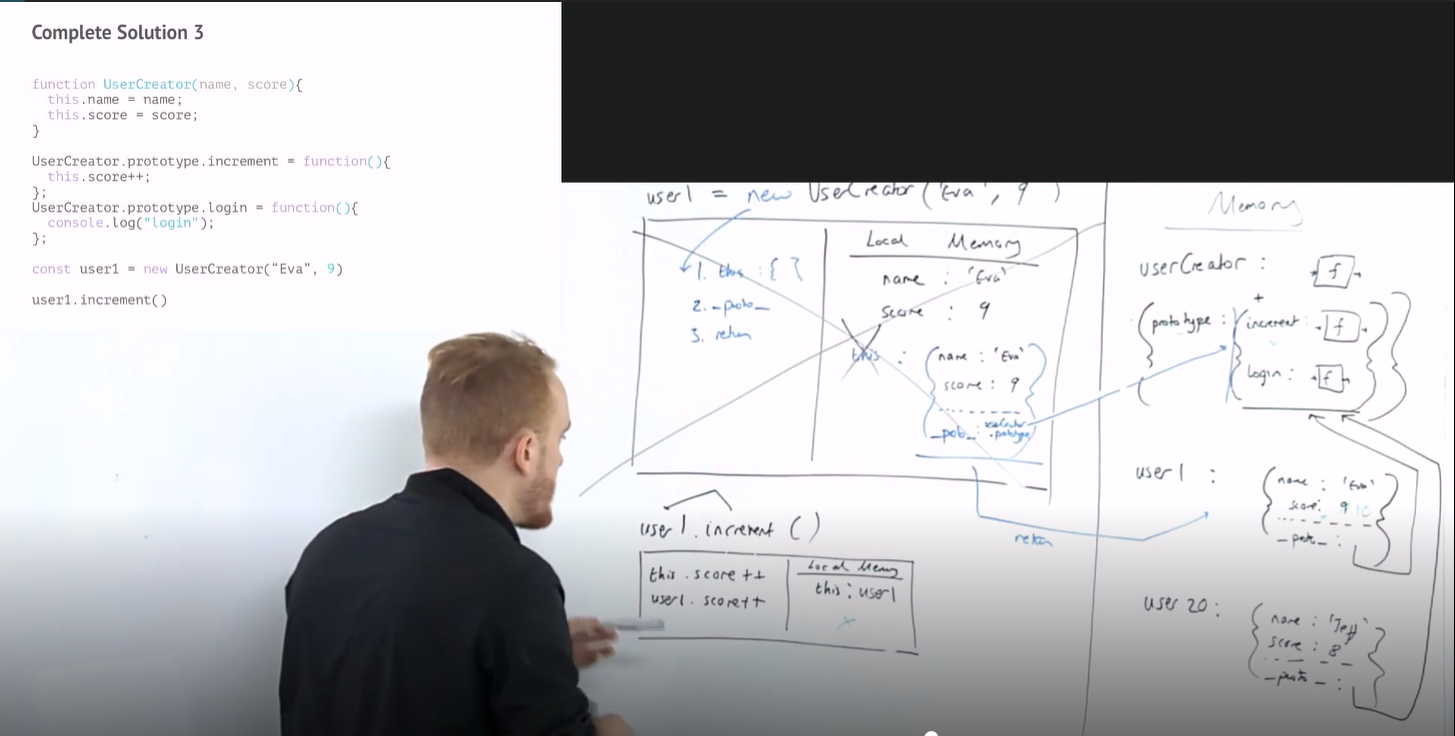 Complete Solution 3
function UserCreator(name, score){
this.name = name;
this.score = score;
}
UserCreator.prototype.increment = function(){
this.score++;
};
UserCreator.prototype.login = function(){
console.log("login");
};
const user1 = new UserCreator("Eva", 9)
user1.increment()
user1 = new UserCreator('Eva', 9)
1. this : { }
2. _proto_
3. return
Local Memory
name : 'Eva'
score : 9
this :
name : 'Eva'
score : 9
_proto_ : userCreator
.prototype
return
user1.increment ()
this.score++
user1.score++
Local Memory
this : user1
Memory
userCreator : f
+
{prototype : {increment : f
login : f }}
user1 :
{name : 'Eva'
score: 9 10
_proto_ : }
user 20 :
{name : 'Jeff'
score : 8
_proto_ : }